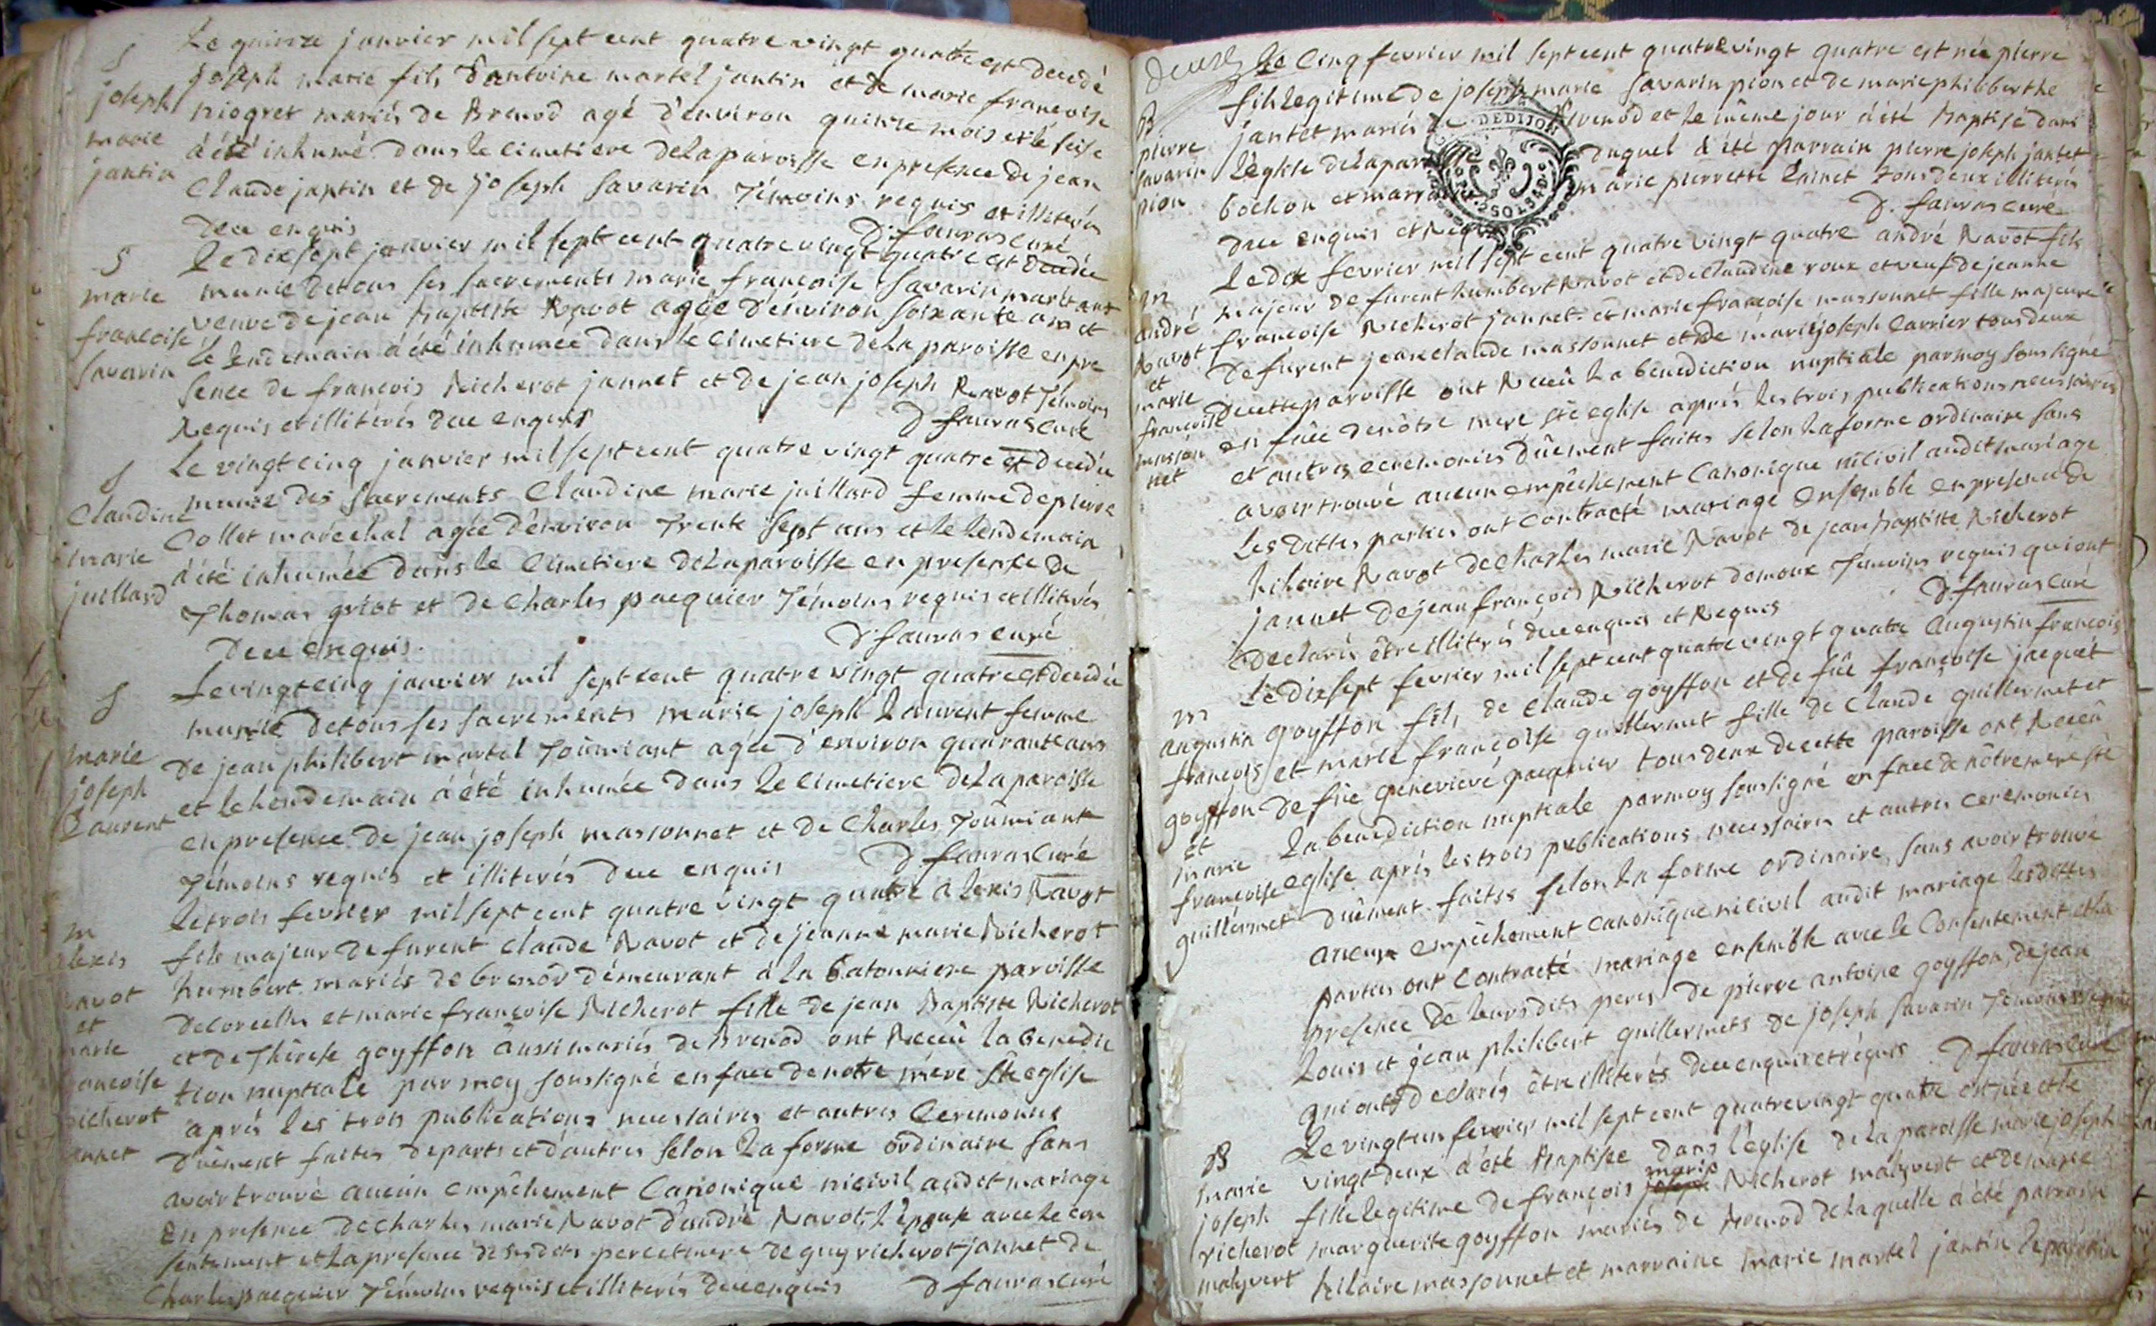 Le quinze janvier mil sept cent quatre vingt quatre est decedé
S
joseph marie fils d'antoine martel jantin et de marie francoise
joseph
niogret mariés de Brenod agé d'environ quinze mois et le seise
marie
a été inhumé dans le cimetiere dela paroisse en presence de jean
jantin
Claude jantin et de joseph Savarin Témoins requis et illiterés
deu enquis
D. fauras curé
S
Le dix sept janvier mil sept cent quatre vingt quatre est decedée
marie
munie de tous ses sacrements marie francoise Savarin
francoise
veuve de jean Baptiste Ravot agée d'environ soixante ans et
Savarin
le lendemain a été inhumée dans le cimetiere dela paroisse en pre
sence de francois Richerot jannet et de jean joseph Ravot Témoins
Requis et illiterés deu enquis
D fauras curé
S
Le vingt cinq janvier mil sept cent quatre vingt quatre est decedée
Claudine
munie des sacrements Claudine marie juillard femme de pierre
Collet maréchal agée d'environ Trente sept ans et le lendemain
marie
a été inhumée dans le cimetiere dela paroisse en presence de
juillard
Thomas griot et de Charles pacquier Témoins requis et illiterés
deu enquis.
D fauras curé
S
Le vingt cinq janvier mil sept cent quatre vingt quatre est decedée
munie de tous ses sacrements marie joseph Laurent femme
marie
de jean philibert martel Toûmiant agée d'environ quarante ans
joseph
et le lendemain a été inhumée dans le cimetiere dela paroisse
Laurent
en presence de jean joseph massonnet et de Charles Toûmiant
Témoins requis et illiterés deu enquis
D fauras curé
m
Le trois fevrier mil sept cent quatre vingt quatre alexis Ravot
alexis
fils majeur de furent Claude Ravot et de jeanne marie Richerot
ravot
humbert mariés de brenod demeurant à la Catonniere paroisse
et
de Corcelles et marie françoise Richerot fille de jean Baptiste Richerot
marie
et de Thérese goyffon aussi mariés de Brenod ont Receû la benedic
ancoise
tion nuptiale par moy soussigné en face de notre mère Ste eglise
richerot
aprés les trois publications necessaires et autres Ceremonies
annet
duêment faites de parts et d'autres selon la forme ordinaire sans
avoir trouvé aucun empêchement Canonique ni civil audit mariage
En presence de charles marie Ravot d'andré Ravot l'epouse avec le con
sentement et la presence de ses dits pere et mere de guy richerot jannet de
Charles pacquier Témoins requis et illiterés deu enquis
D fauras curé
Le Cinq fevrier mil sept cent quatre vingt quatre est né pierre
fils legitime de joseph marie Savarin pion et de marie philiberthe
B
jantet mariés de Brenod et le même jour a été Baptisé dans
pierre
l'église dela paroisse duquel a été parrain pierre joseph jantet
savarin
bochon et marraine marie pierrette Lainet tous deux illiterés
pion
deu enquis et Requis
D. fauras curé
DEDIJON
Le dix fevrier mil sept cent quatre vingt quatre andré Ravot fils
m
majeur de furent humbert Ravot et de Claudine roux et veuf de jeanne
andré
francoise Richerot jannet et marie françoise massonnet fille majeure
Ravot
de furent jean claude massonnet et de marie joseph Carrier tous deux
et
marie
de cette paroisse ont Receû la benediction nuptiale par moy soussigné
francoise
en face de nôtre mere ste eglise aprés les trois publications necessaires
masson
et autres ceremonies duêment faites selon la forme ordinaire sans
net
avoir trouvé aucun empêchement Canonique ni civil audit mariage
Les dittes parties ont Contracté mariage ensemble en presence de
hilaire Ravot de charles marie Ravot de jean baptiste Richerot
jannet de jean francois Richerot domoux Témoins requis qui ont
declarés être illiterés deu enquis et Requis
D. fauras curé
Le dix sept fevrier mil sept cent quatre vingt quatre augustin francois
m
goyffon fils de Claude goyffon et de fûe françoise jacquet
augustin
et marie françoise guillermet fille de Claude guillermet et
françois
de fûe genevieve pacquier tous deux de cette paroisse ont Receû
goyffon
La benediction nuptiale par moy soussigné en face de nôtre mere ste
et
marie
eglise aprés les trois publications necessaires et autres ceremonies
françoise
duêment faites selon la forme ordinaire sans avoir trouvé
guillermet
aucun empêchement Canonique ni civil audit mariage les dittes
parties ont Contracté mariage ensemble avec le Consentement et la
presence de leurs dits peres de pierre antoine goyffon, de jean
Louis et jean philibert guillermets de joseph Savarin Temoins
qui ont declarés être illiterés deu enquis et requis
D fauras curé
Le vingt un fevrier mil sept cent quatre vingt quatre est née et le
B
vingt deux a été Baptisée dans l'église dela paroisse marie joseph
marie
fille legitime de françois marie Richerot malyvert et de marie
joseph
marguerite goyffon mariés de Brenod de laquelle a été parrain
richerot
hilaire massonnet et marraine marie martel jantin
malyvert